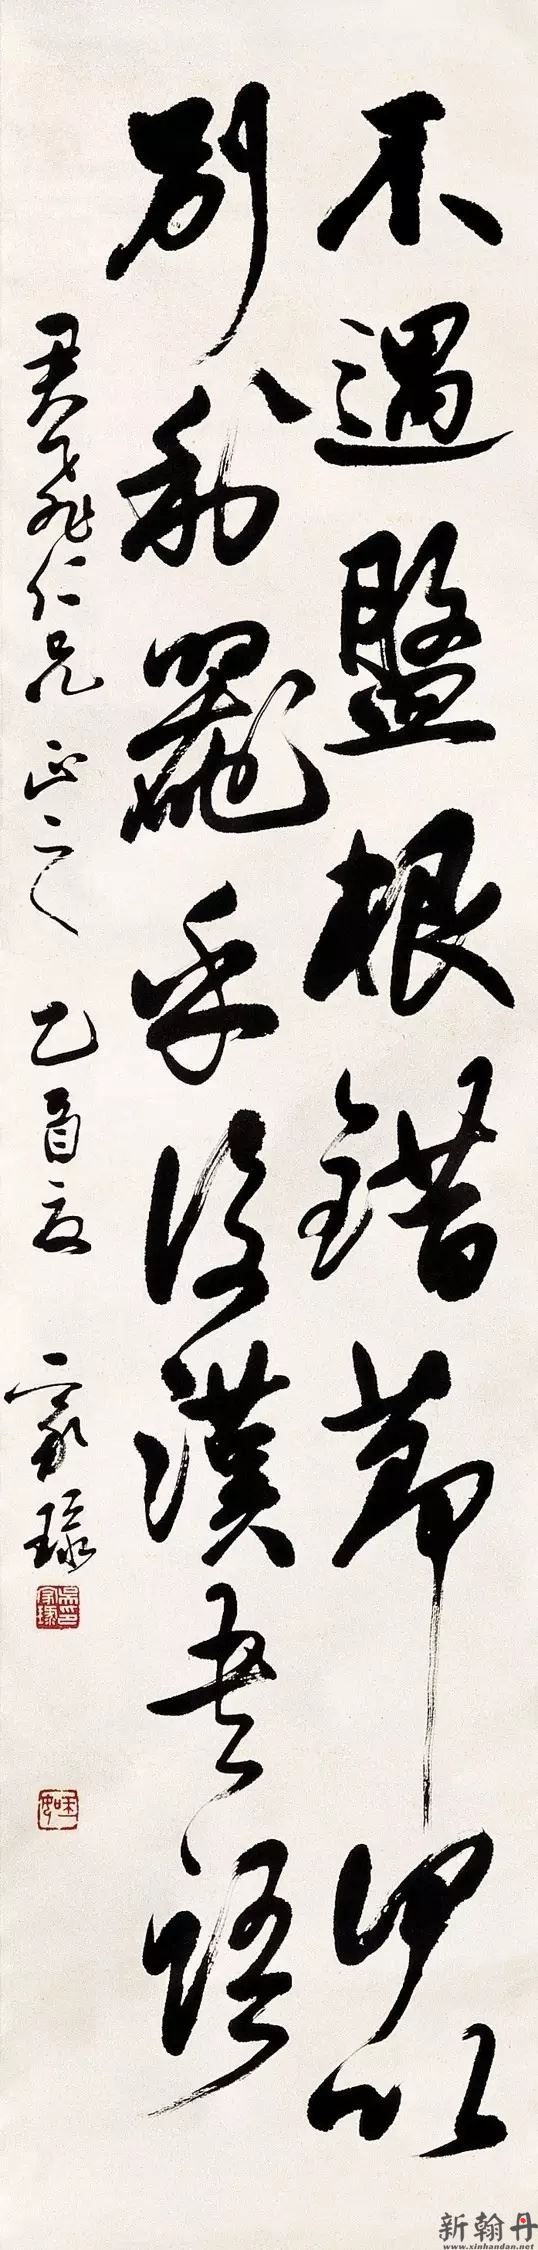 不遇盤根錯節何以
別利器乎後漢書語
君飛仁兄正之 乙酉夏 家琭
新翰丹
www.xinhandan.net